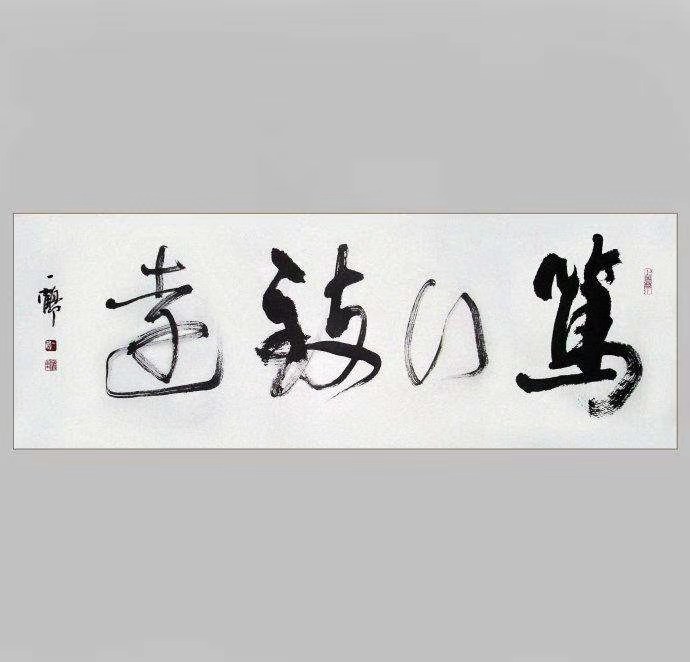 篤行致遠
一鶴